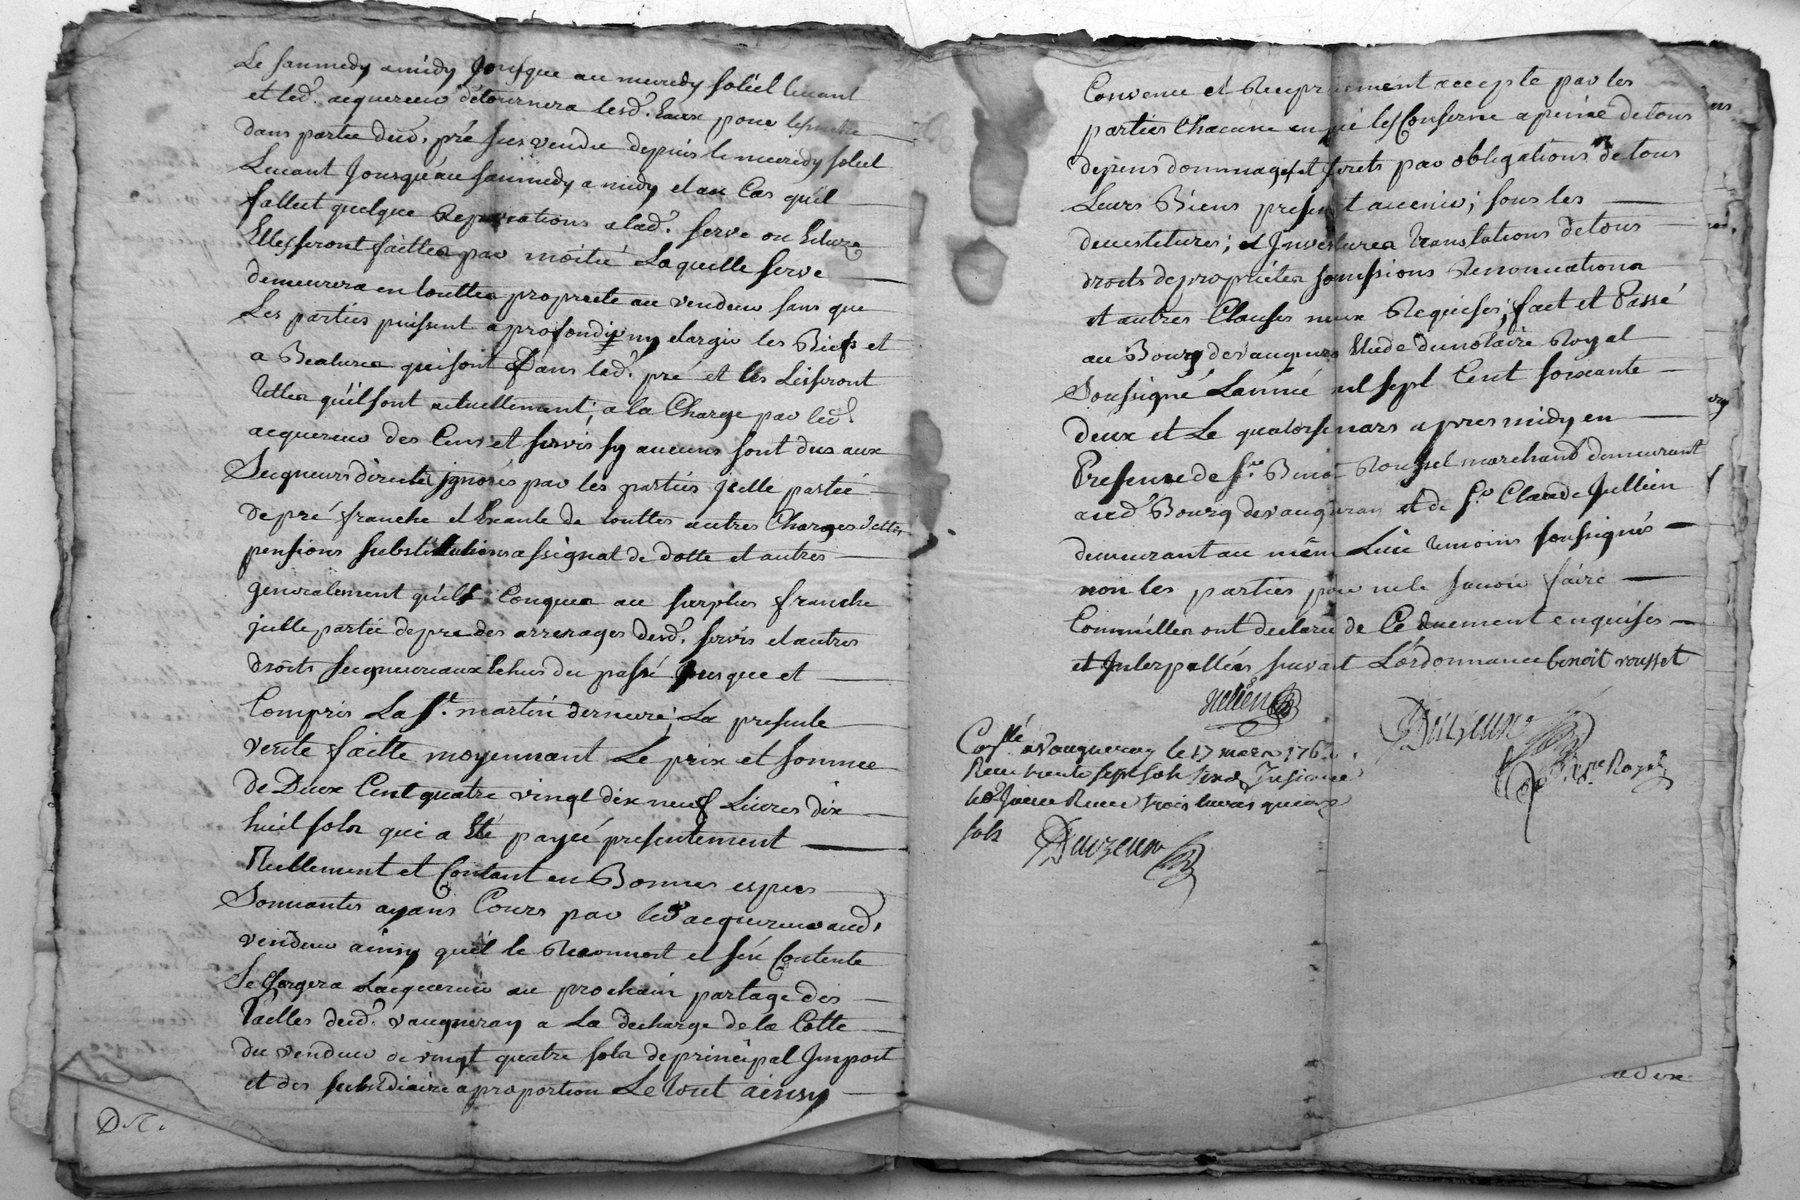 Le sammedy amidy Jousque au mecredy soleil levant
et led. acquereur détournera lesd. Eaux pour
dans partie dud. pré sus vendue depuis le mecredy soleil
Levant Jousqu'au sammedy a midy et au Cas qu'il
fallut quelque Reparations a lad. serve ou Ecluze
Elles seront faittes par moitié Laquelle serve
demeurera en touttes propriete au vendeur sans que
Les parties puissent aprofondir ny elargir les Biefs et
a Bealures qui sont Dans led. pré et les Laisseront
telles qu'il sont actuellement; a la Charge par led
acquereur des Cens et servis sy aucuns sont dus aux
Seigneurs directes ignorés par les parties jcelle partie
de pré franche et Exante de touttes autres Charges dettes
pensions substitutions assignat de dotte et autres
generalement quels Conques au surplus franche
jcelle partie de pre des arrerages desd. servis et autres
droits seigneuriaux Echus du passé Jusque et
Compris La St. martin derniere; La presente
vente faitte moyennant Le prix et somme
de Deux Cent quatre vingt dix neuf Livres dix
huit sols qui a Eté payée presentement
Reellement et Contant en Bonnes espces
Sonnantes ayans Cours par led acquereur aud.
vendeur ainsy qu'il le Reconnoit et s'en Contente
Se Chargera Lacquereur au prochain partage des
Tailles dud. vaugneray a La decharge de la Cotte
du vendeur de vingt quatre sols de principal Impost
et des subsidiaire aproportion Le tout ainsy
D.R.
Convenu et Reciproquement accepte par les
parties Chacune en qui les Conserne a peine de tous
depens dommages et jnterets par obligations de tous
Leurs Biens present avenir; sous les
devestitures; et Jnvestures translations de tous
droits de proprietes soumissions Renonciations
et autres Clauses mieux Requises; fait et Passé
au Bourg de vaugneray Etude du notaire Royal
Soussigné Lannée mil sept Cent soixante
deux et Le quatorse mars apres midy en
Presence de sr. Benoit Rousset marchand demeurant
aud. Bourg de vaugneray et de sr. Claude Jullien
demeurant au mêm Lieu temoins soussignés
non les parties pour ne le savoir faire
Comm'elles ont declaré de Ce duement enquises
et Interpellées suivant L'ordonnance benoit rousset
Controllé a Vaugneray le 17 mars 1762.
Recu trente sept sols six d.
Recu trois livres quinze
sols
Nre Royal